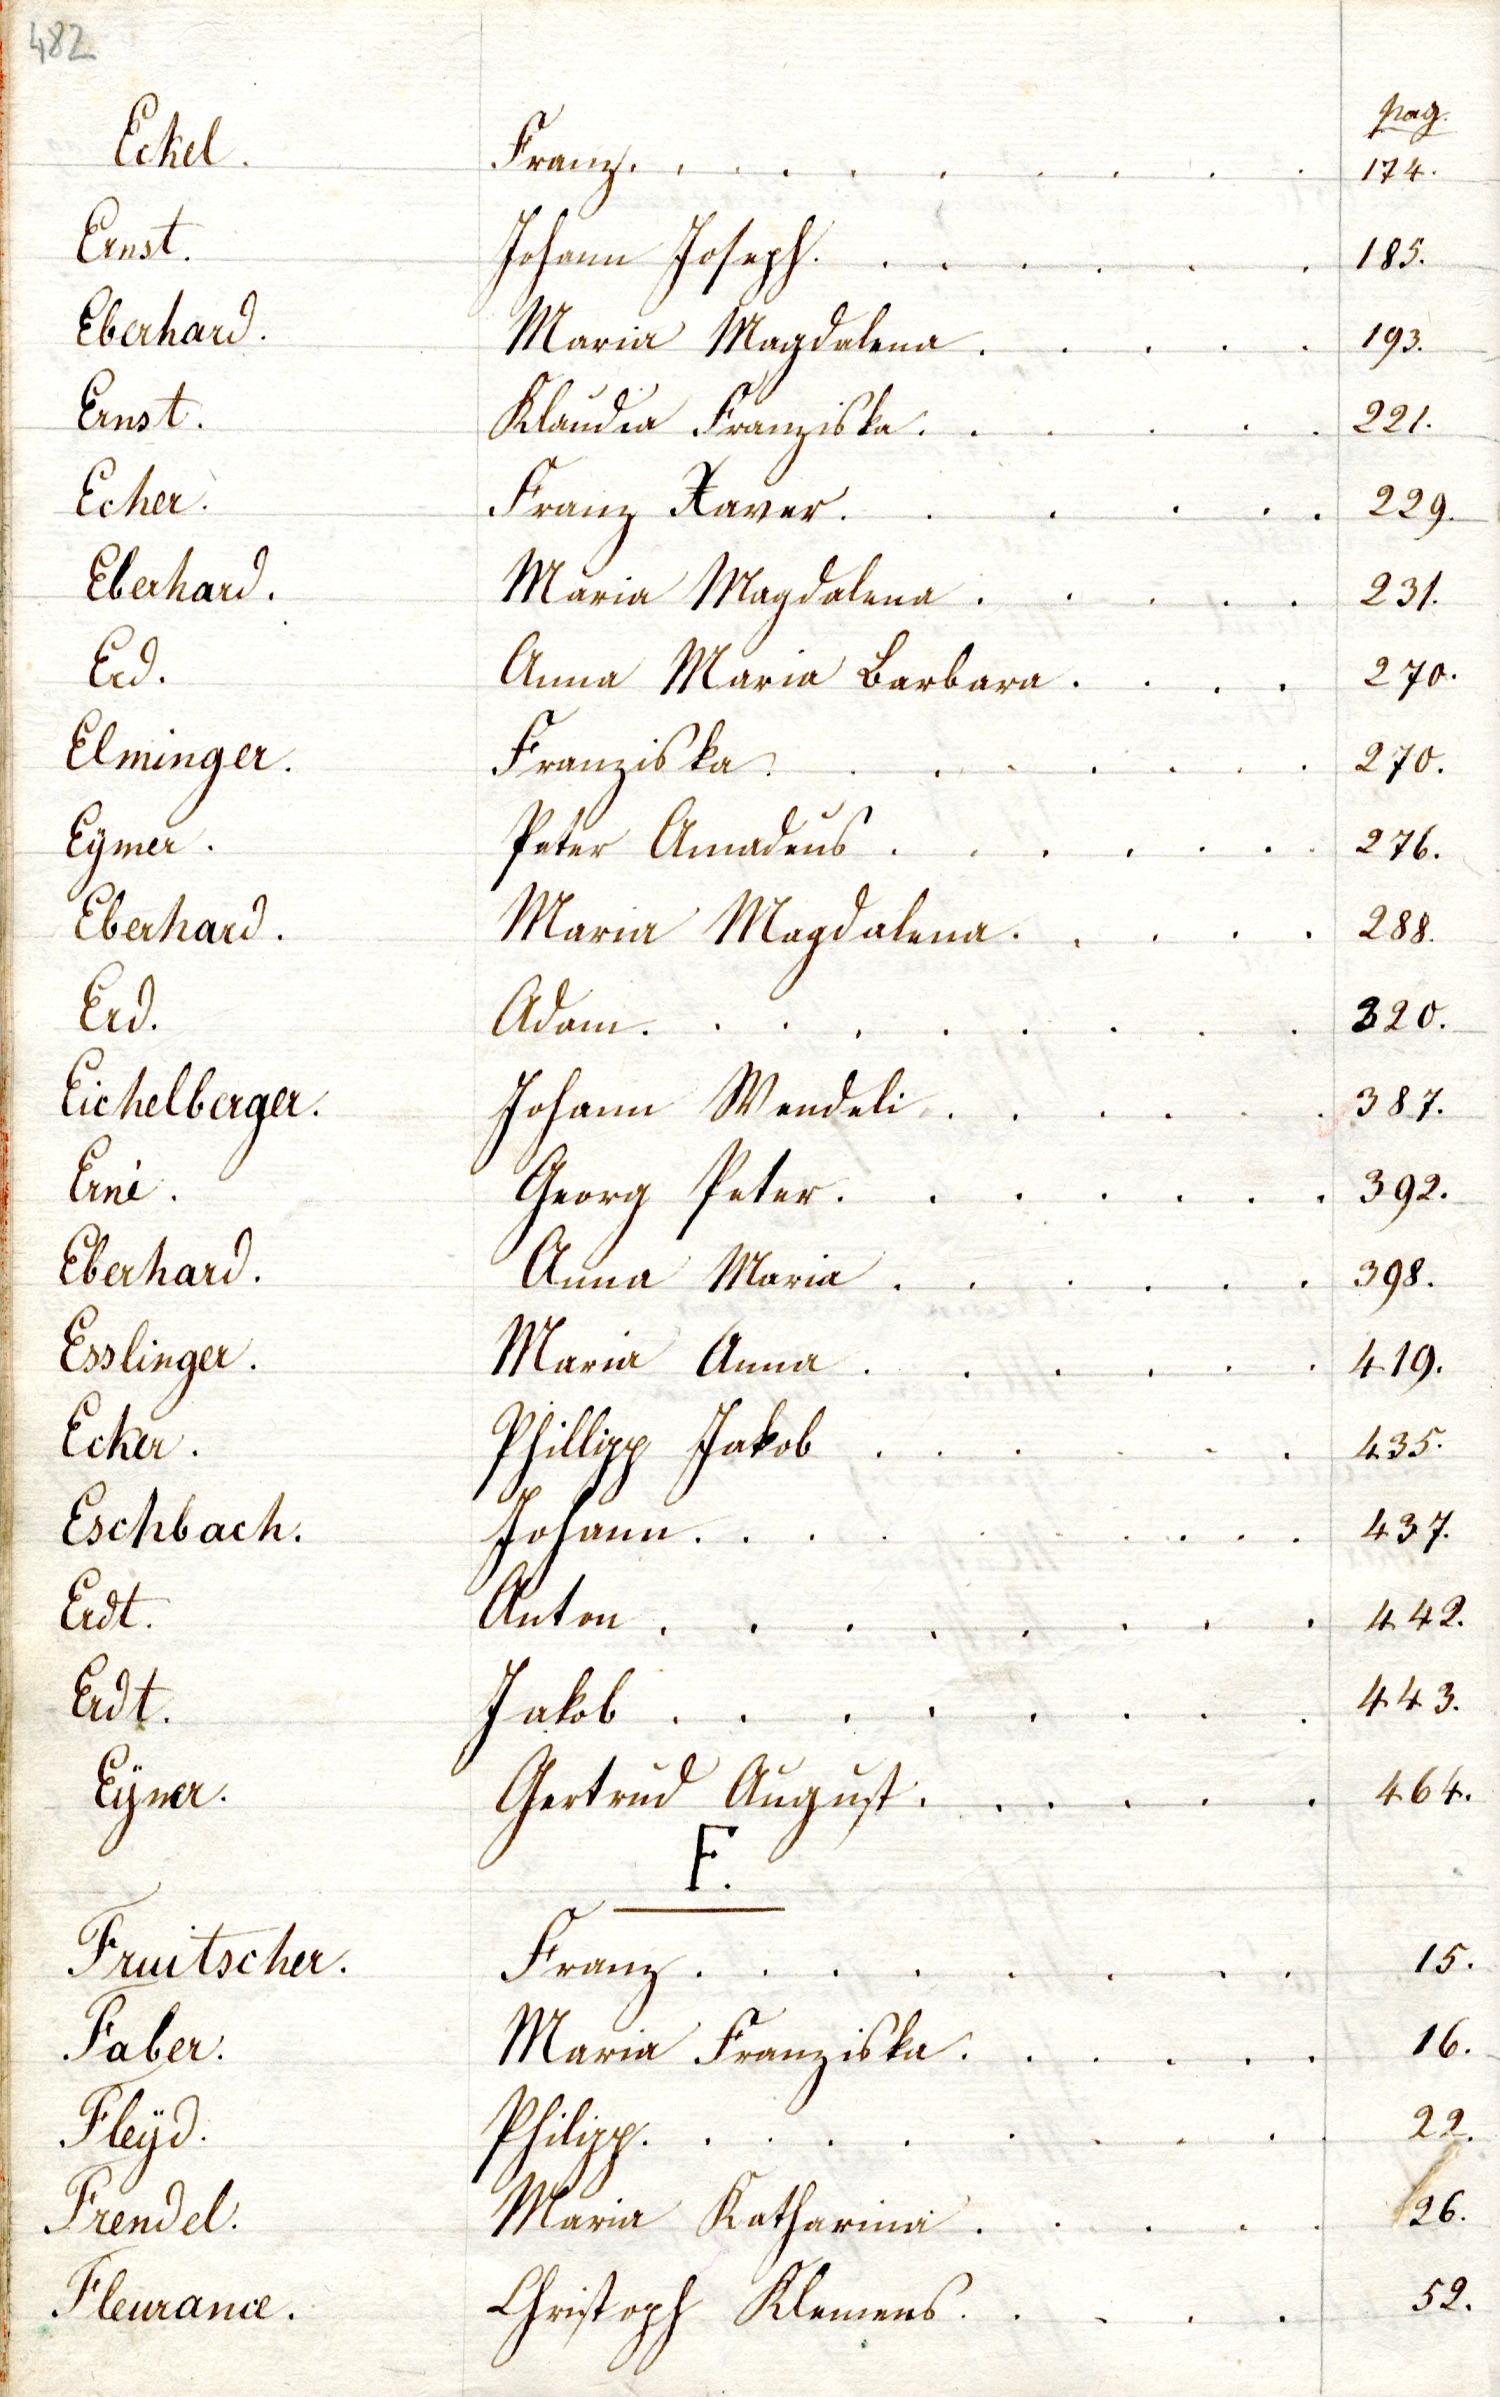 482
pag.
Eckel. Franz. . . . . . . . . 174.
Ernst. Johann Joseph. . . . . . . 185.
Eberhard. Maria Magdalena . . . . . 193.
Ernst. Klaudia Franziska. . . . . . 221.
Echer. Franz Xaver. . . . . . 229.
Eberhard. Maria Magdalena . . . . . 231.
Erd. Anna Maria Barbara . . . . 270.
Elminger. Franziska . . . . . . . . 270.
Eymer. Peter Amadeus . . . . . . . 276.
Eberhard. Maria Magdalena. . . . . 288.
Erd. Adam. . . . . . . . . 320.
Eichelberger. Johann Wendeli . . . . . . 387.
Erni. Georg Peter. . . . . . . 392.
Eberhard. Anna Maria . . . . . . 398.
Esslinger. Maria Anna . . . . . . 419.
Ecker. Phillipp Jakob . . . . . . 435.
Eschbach. Johann. . . . . . . . . 437.
Erdt. Anton . . . . . . . . 442.
Erdt. Jakob . . . . . . . . 443.
Eÿmer. Gertrud August. . . . . . 464.
F.
Fruitscher. Franz . . . . . . . . 15.
Faber. Maria Franziska. . . . . . 16.
Fleÿd. Philipp. . . . . . . . . 22.
Frendel. Maria Katharina . . . . . 26.
Fleurance. Christoph Klemens. . . . . 52.